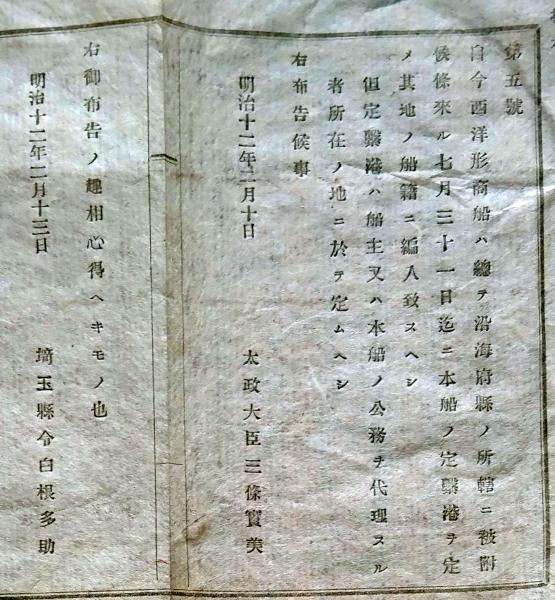 第五號
自今西洋形商船ハ總テ沿海府縣ノ所轄ニ被附
候條來ル七月三十一日迄ニ本船ノ定繫港ヲ定
メ其地ノ船籍ニ編入致スヘシ
但定繫港ハ船主又ハ本船ノ公務ヲ代理スル
者所在ノ地ニ於テ定ムヘシ
右布告候事
明治十二年二月十日
太政大臣三條實美
右御布告ノ趣相心得ヘキモノ也
明治十二年二月十三日
埼玉縣令白根多助